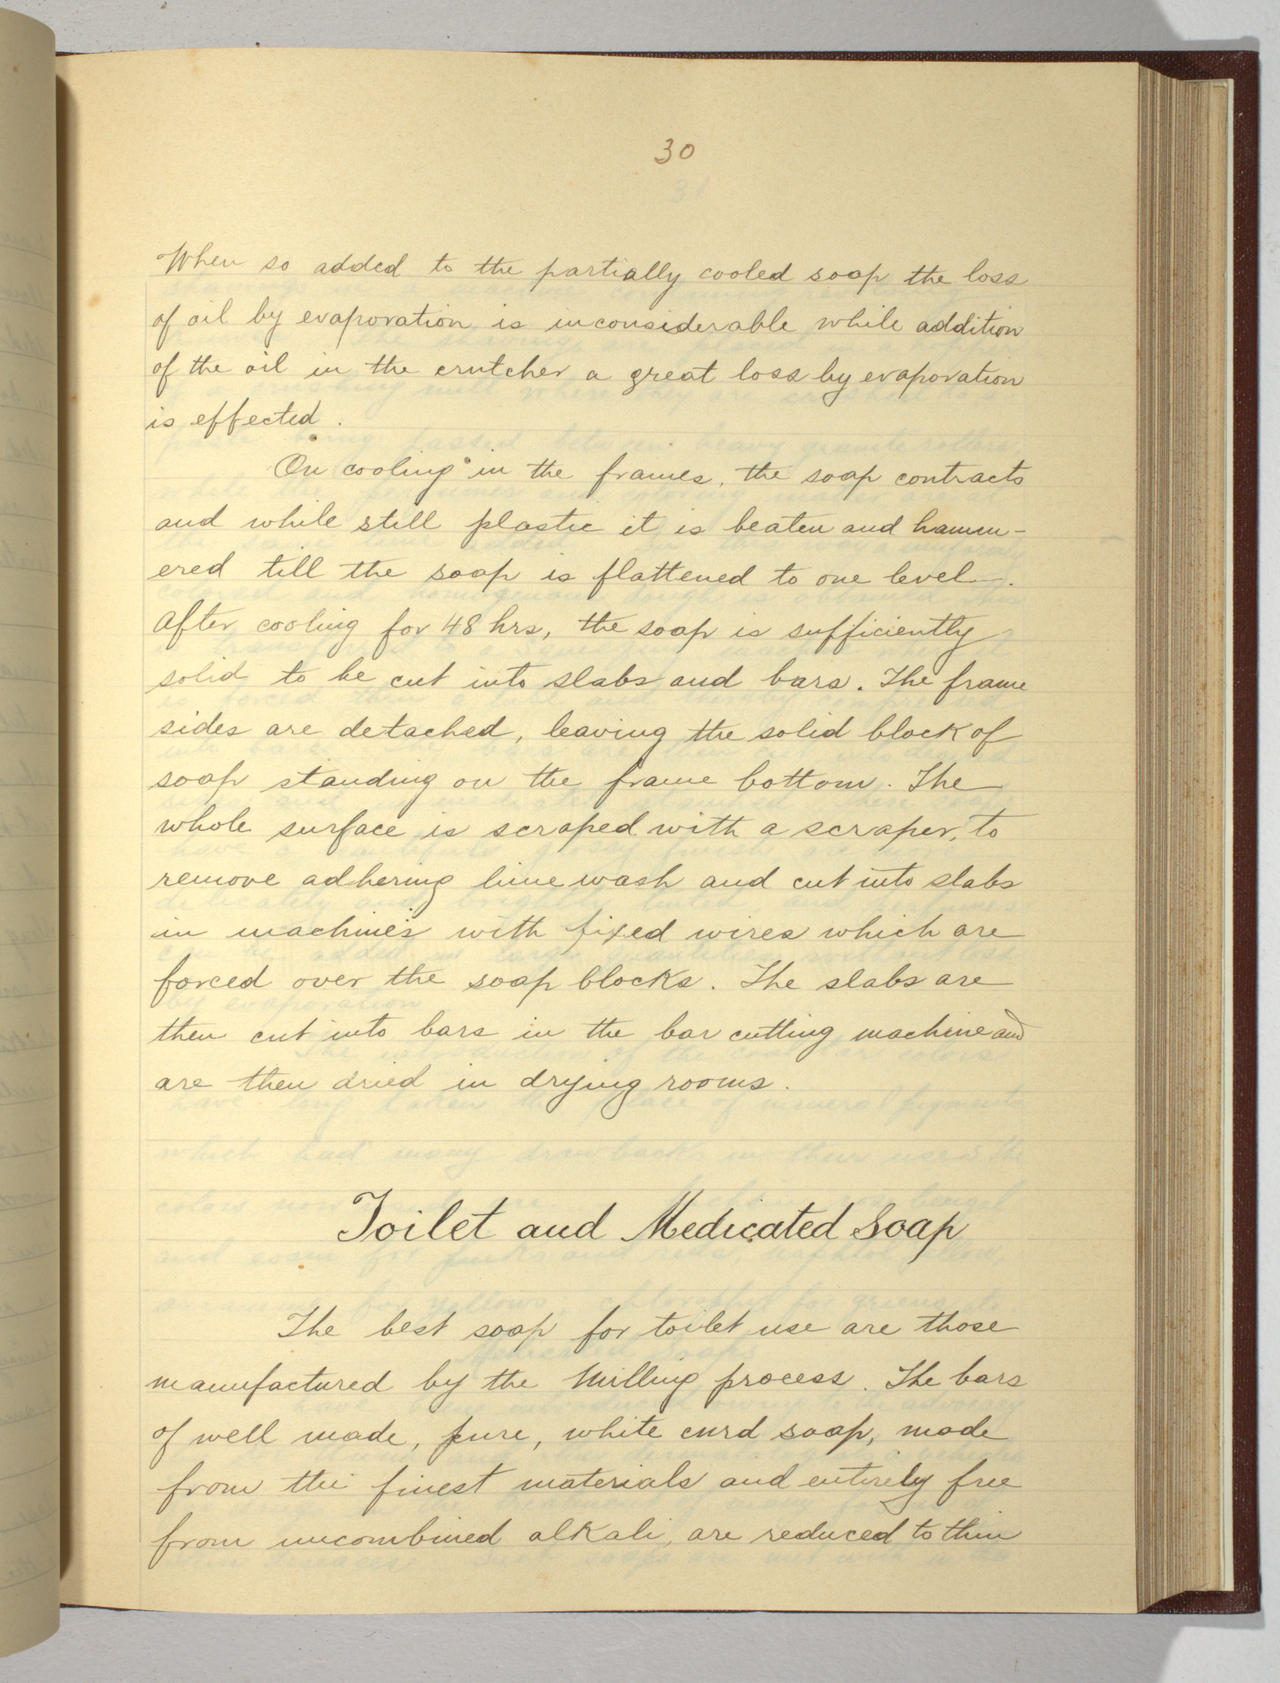 30
When so added to the partially cooled soap the loss
of oil by evaporation is inconsiderable while addition
of the oil in the crutcher a great loss by evaporation
is effected.
On cooling in the frames, the soap contracts
and while still plastic it is beaten and hamm-
ered till the soap is flattened to one level.
After cooling for 48 hrs, the soap is sufficiently
solid to be cut into slabs and bars. The frame
sides are detached, leaving the solid block of
soap standing on the frame bottom. The
whole surface is scraped with a scraper, to
remove adhering lime wash and cut into slabs
in machines with fixed wires which are
forced over the soap blocks. The slabs are
then cut into bars in the bar cutting machine and
are then dried in drying rooms.
Toilet and Medicated Soap
The best soap for toilet use are those
manufactured by the Milling process. The bars
of well made, pure, white curd soap, made
from the finest materials and entirely free
from uncombined alkali, are reduced to thin